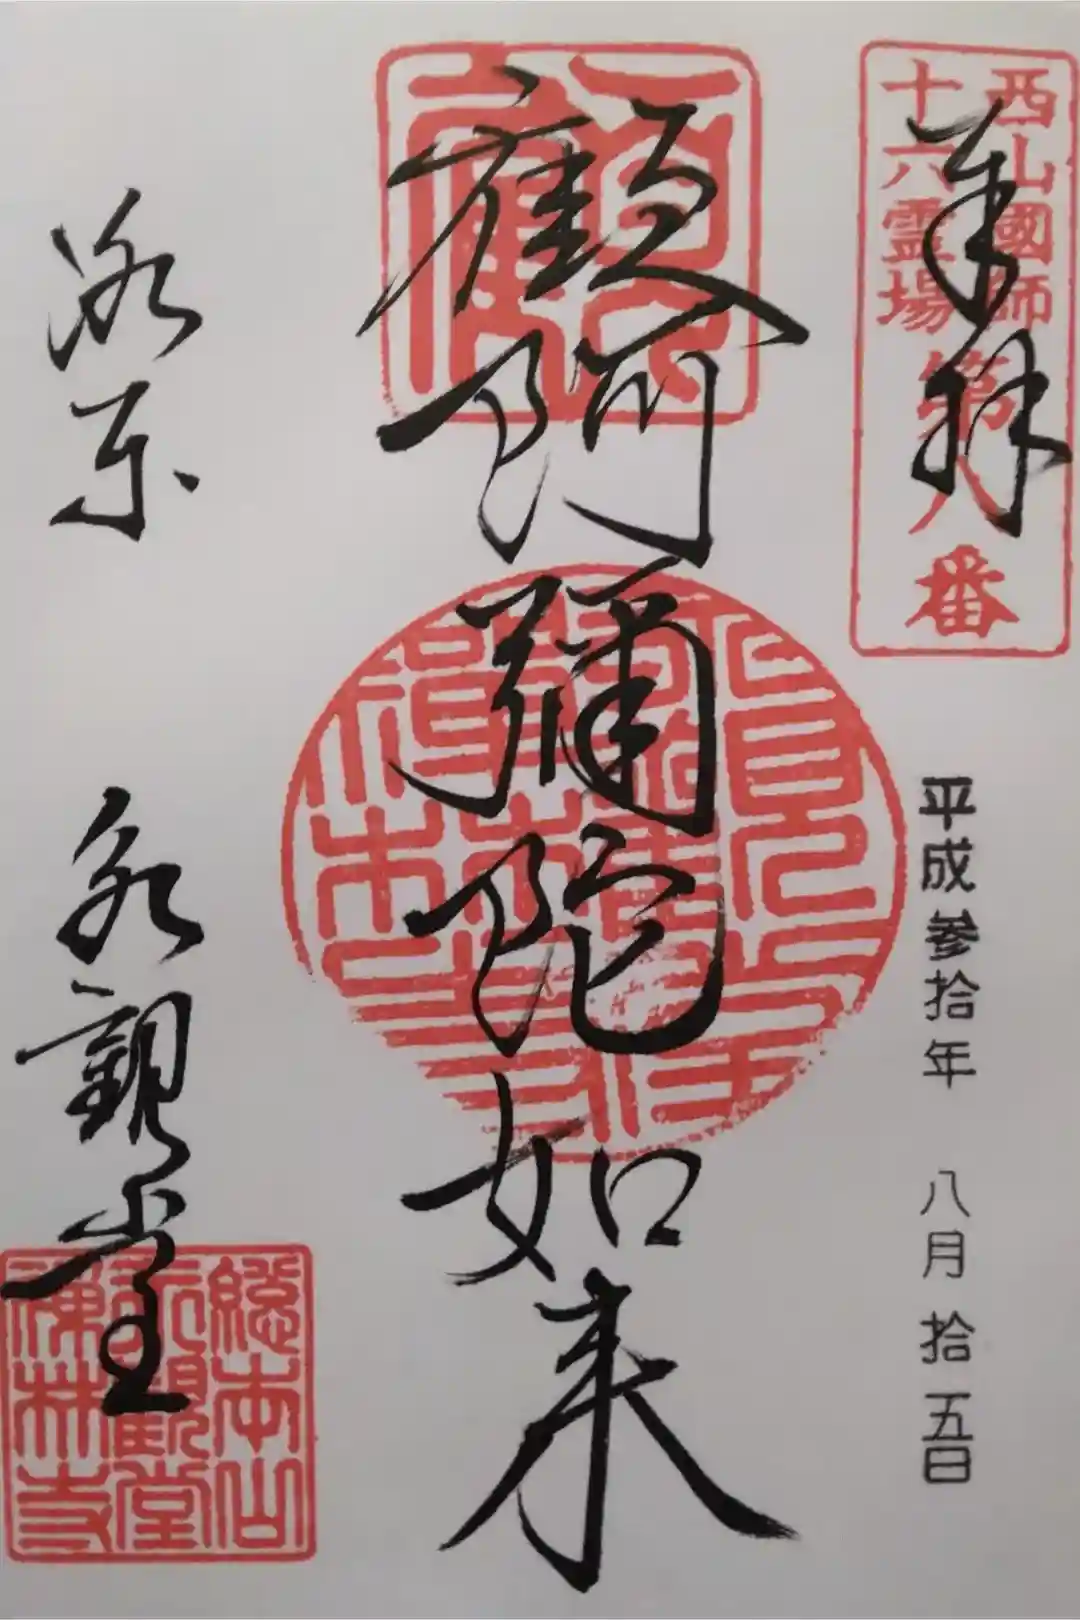 奉拝
西山國師
十六霊場
第八番
平成参拾年 八月拾五日
顧阿彌陀如来
洛东 永観堂
総本山
永観堂
禅林寺